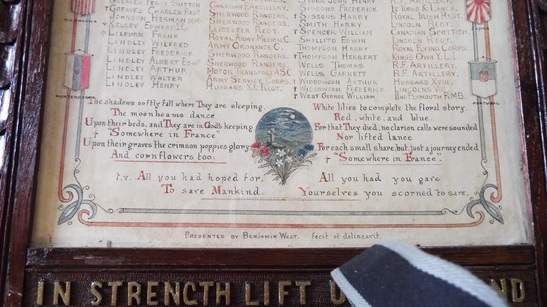 Canadian Artillery.
Sherwood Rangers.
Sherwood Rangers.
Leicester Regt.
Royal Army Medical C.
Army Ordnance C.
Sherwood Rangers.
Sherwood Rangers.
Motor Transport ASC
Army Service Corps
Hussars XX Regt.
Kilburn Frank
Lindley Wilfred
Lindley Frederick
Lindley Albert Edw
Lindley Arthur
Lindley Walter
Lindley Henry
Simpkins Frederick
Sissons Harry
Smith Harry
Spencer William
Shillito Edwin
Thompson Harry
Thompson Herbert
Wells Thomas
Wells Garnett
Widdowson Arthur
Widdowson Frederick
West George William
Royal Irish Regt.
Canadian Scottish
Lincoln Regt.
Royal Flying Corps.
Kings Own Y.L.I.
R.F. Artillery.
R.F. Artillery.
Portugal
The shadows softly fall where They are sleeping.
The moonbeams dance
Upon their beds, and They are in God's keeping
"Somewhere in France"
Upon their graves the crimson poppies glory
And cornflowers too.
White lilies to complete the floral story.
Red, white, and blue.
For that They died, no clarion calls were sounded
Nor lifted lance
For each small share, but just a journey ended
"Somewhere in France".
All you had hoped for.
To save Mankind.
All you had you gave
Yourselves you scorned to save.
Presented by Benjamin West. fecit et delineavit.
IN STRENGTH LIFT